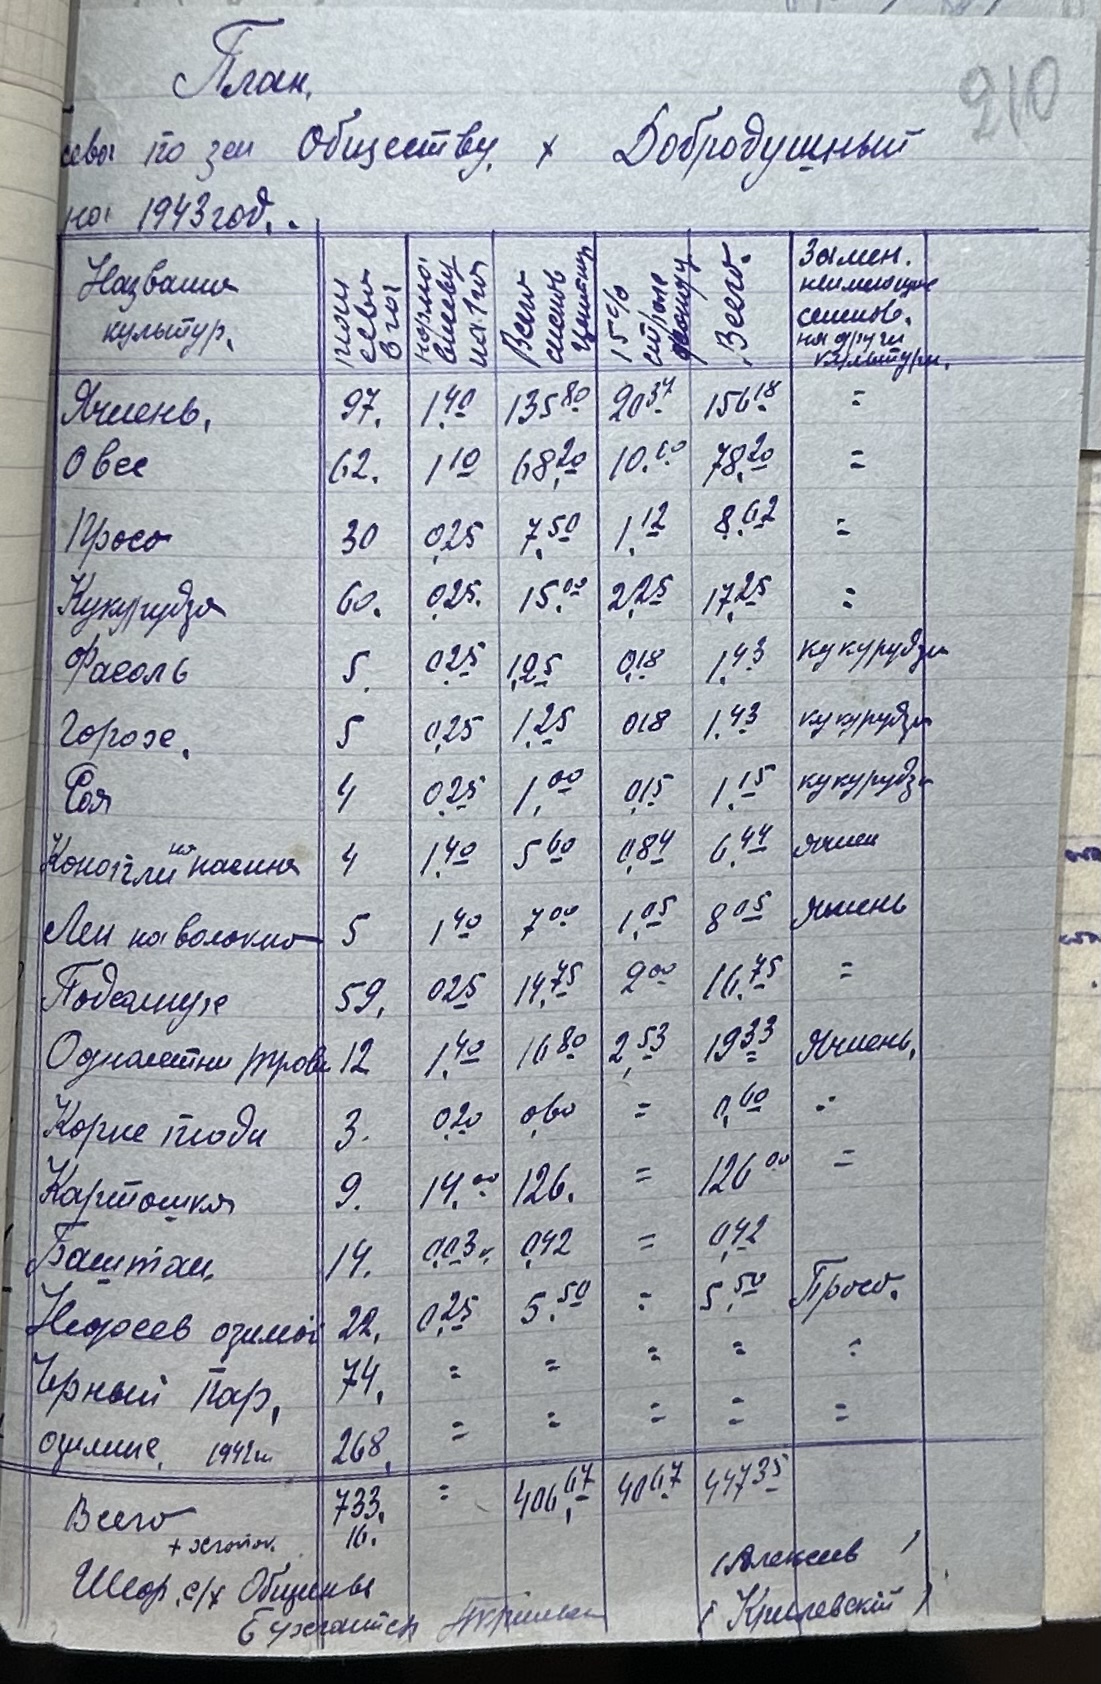 210
План.
сева по зем Обществу, х Добродушный
на 1943 год.
Название культур. | площ сева в га | норма высеву на 1 га | Всего семян центнер | 15% страх фонду | Всего. | Замен. неимеющие семенов. на други культури.
Ячмень, 97. 1.40 135 80 20 37 156 18 =
Овес 62. 1 10 68,20 10.00 78,20 =
Просо 30 0,25 7,50 1,12 8,62 =
Кукурудза 60. 0,25. 15.00 2,25 17,25 =
Фасоль 5. 0,25 1,25 0,18 1,43 кукурудза
Горохе. 5 0,25 1,25 0,18 1,43 кукурудза
Соя 4 0,25 1,00 0,15 1,15 кукурудза
Конопли на насиня 4 1,40 5 60 0,84 6,44 ячмен
Лен на волокно 5 1 40 7 00 1,05 8 05 Ячмень
Подсолнух 59. 0 25 14,75 2 00 16,75 =
Однолетни трови 12 1,40 16 80 2,53 19 33 Ячмень.
Корне плоди 3. 0,20 0,60 = 0,60 =
Картошка 9. 14.00 126. = 126 00 =
Баштан. 14. 0,03. 0,42 = 0,42
Недосев озимой 22. 0,25 5.50 = 5,50 Просо.
Чрный пар, 74. = = = = =
озимие, 1942 268. = = = = =
Всего 733. = 406,67 40 67 447 35
16.
с/х Общины (Алексев)
Бухгалтер (Крилевскій)